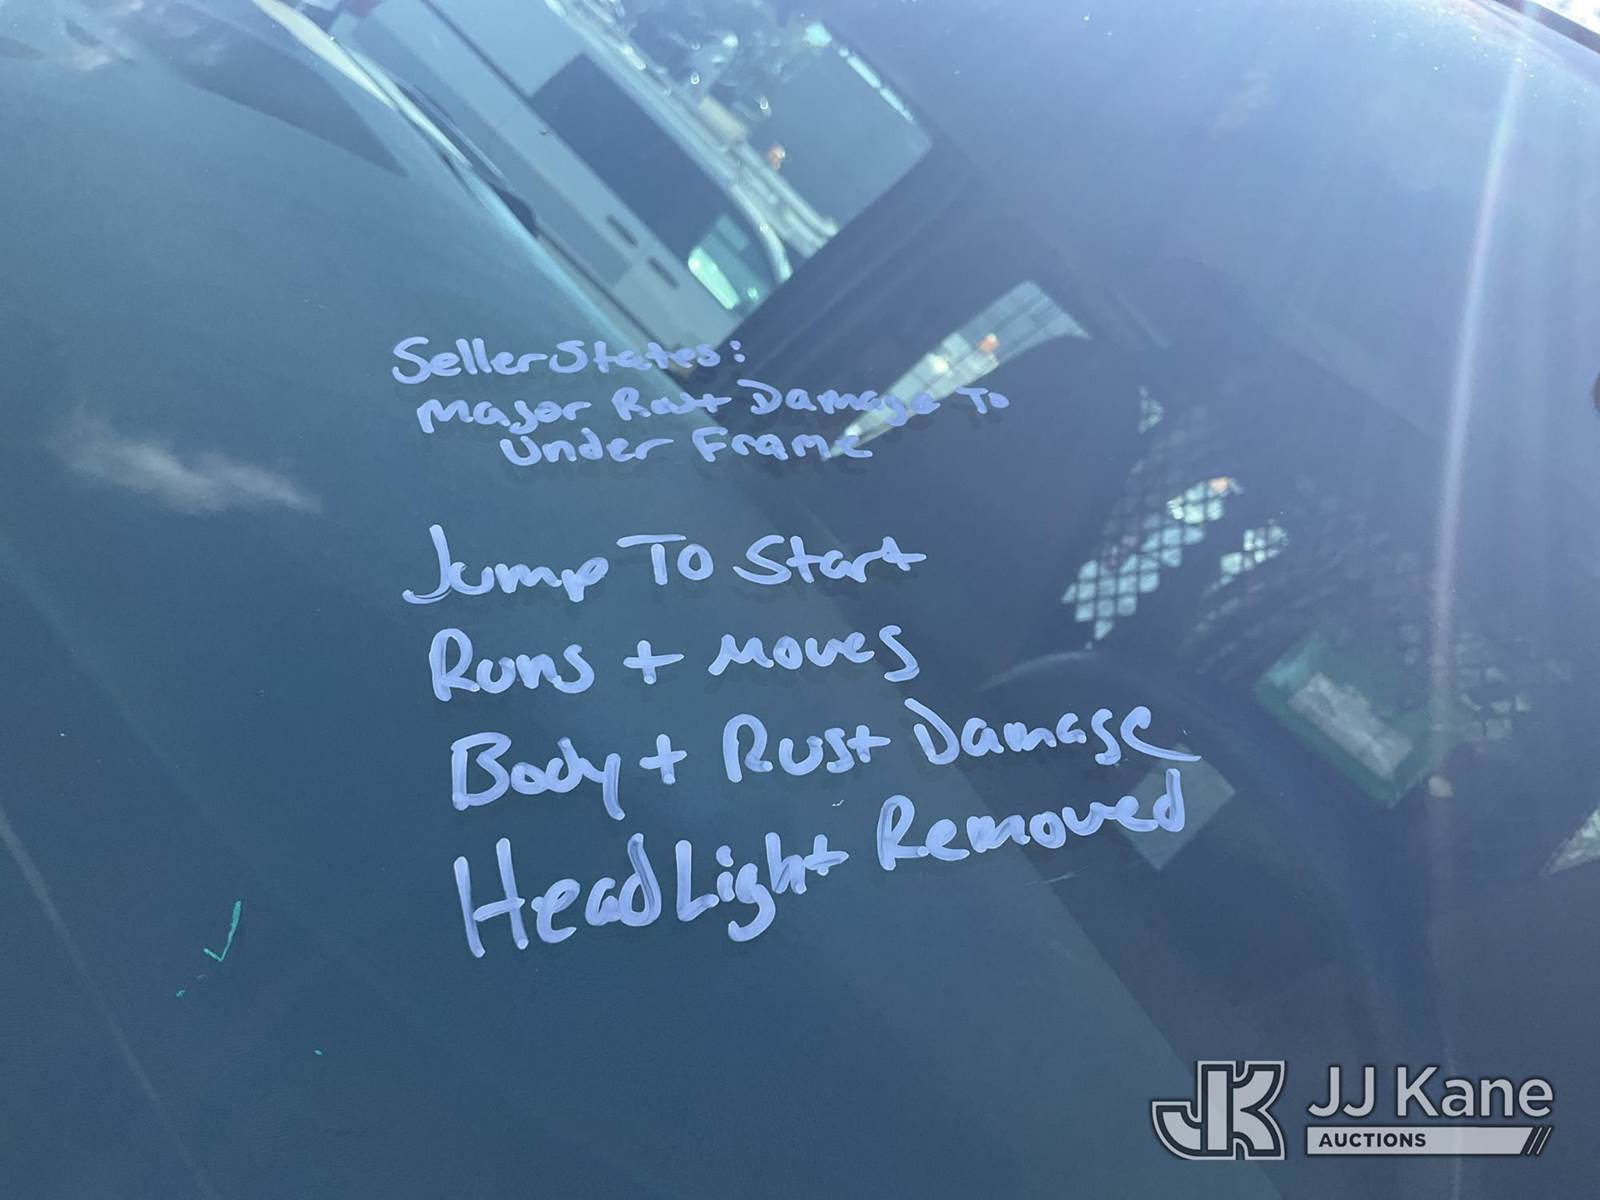 Seller States:
Major Rust Damage To
Under Frame
Jump To Start
Runs + Moves
Body + Rust Damage
HeadLight Removed
JK JJ Kane
AUCTIONS